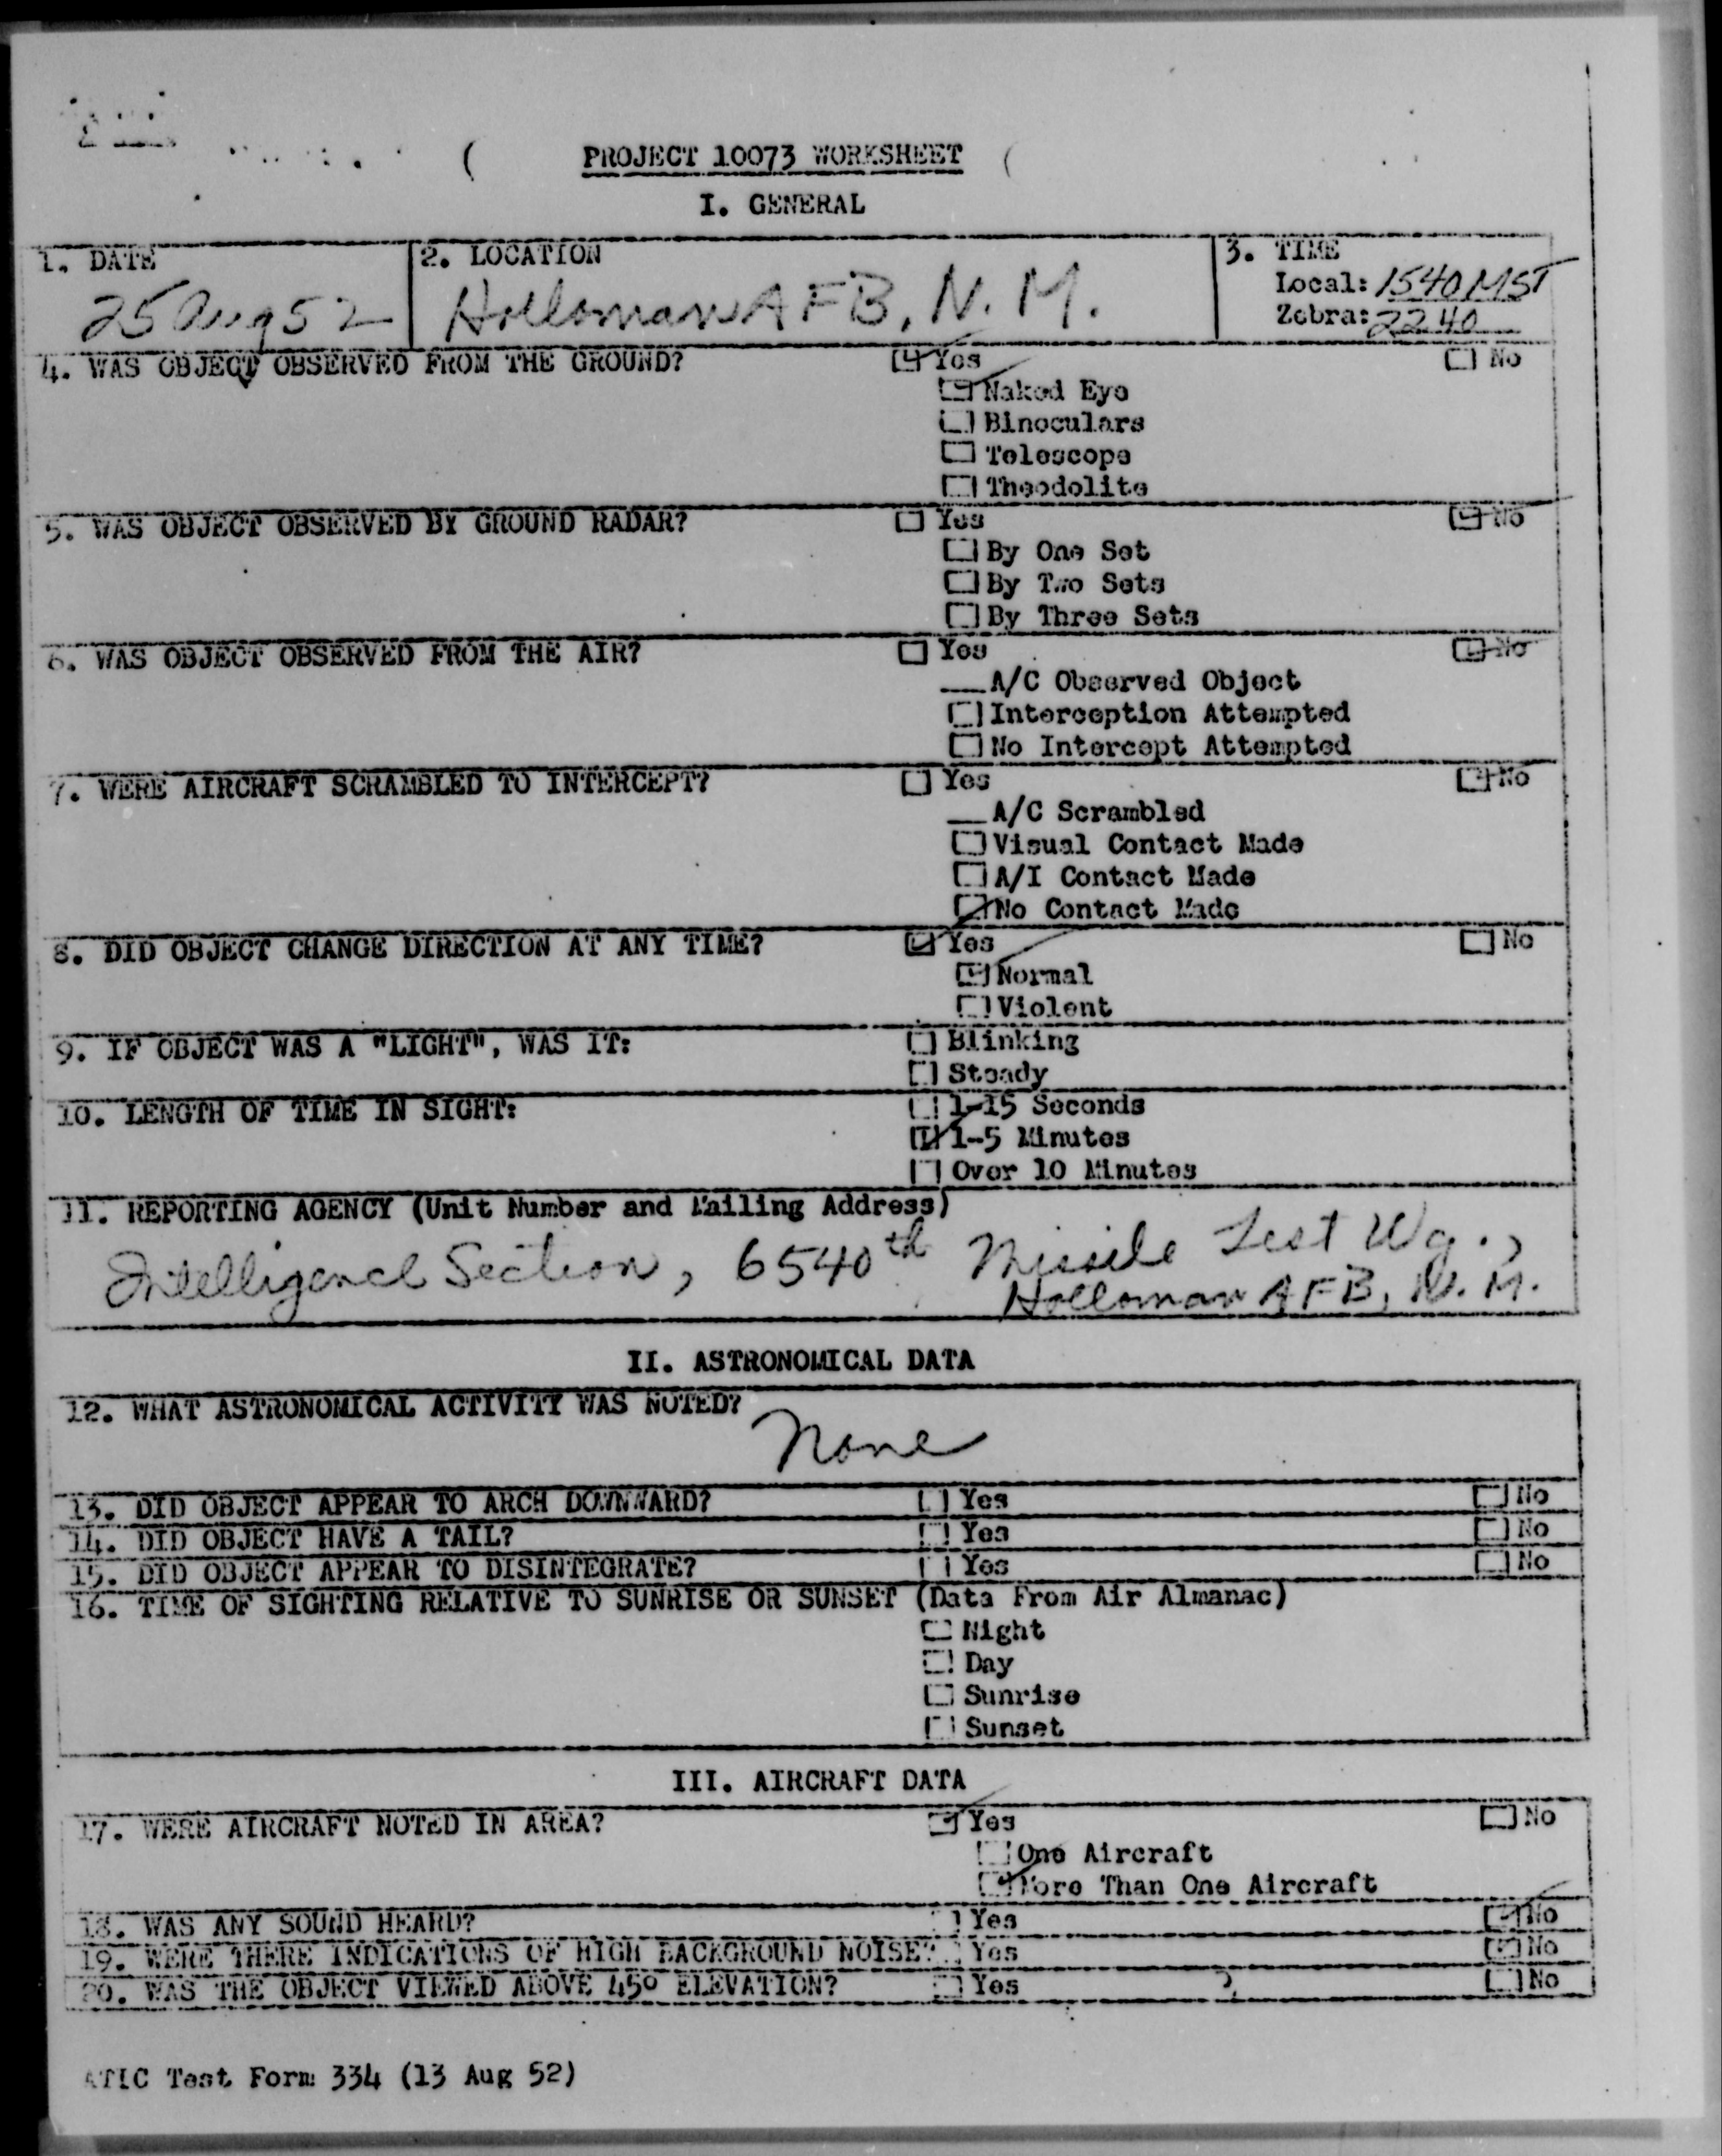 PROJECT 10073 WORKSHEET
I. GENERAL
1. DATE
25 Aug 52
2. LOCATION
Holloman AFB, N. M.
3. TIME
Local: 1540 MST
Zebra: 2240
4. WAS OBJECT OBSERVED FROM THE GROUND? ☑ Yes ☐ No
☑ Naked Eye
☐ Binoculars
☐ Telescope
☐ Theodolite
5. WAS OBJECT OBSERVED BY GROUND RADAR? ☐ Yes ☑ No
☐ By One Set
☐ By Two Sets
☐ By Three Sets
6. WAS OBJECT OBSERVED FROM THE AIR? ☐ Yes ☑ No
__A/C Observed Object
☐ Interception Attempted
☐ No Intercept Attempted
7. WERE AIRCRAFT SCRAMBLED TO INTERCEPT? ☐ Yes ☑ No
__A/C Scrambled
☐ Visual Contact Made
☐ A/I Contact Made
☑ No Contact Made
8. DID OBJECT CHANGE DIRECTION AT ANY TIME? ☑ Yes ☐ No
☑ Normal
☐ Violent
9. IF OBJECT WAS A "LIGHT", WAS IT: ☐ Blinking
☐ Steady
10. LENGTH OF TIME IN SIGHT: ☐ 1-15 Seconds
☑ 1-5 Minutes
☐ Over 10 Minutes
11. REPORTING AGENCY (Unit Number and Mailing Address)
Intelligence Section, 6540th Missile Test Wg.,
Holloman AFB, N. M.
II. ASTRONOMICAL DATA
12. WHAT ASTRONOMICAL ACTIVITY WAS NOTED?
None
13. DID OBJECT APPEAR TO ARCH DOWNWARD? ☐ Yes ☐ No
14. DID OBJECT HAVE A TAIL? ☐ Yes ☐ No
15. DID OBJECT APPEAR TO DISINTEGRATE? ☐ Yes ☐ No
16. TIME OF SIGHTING RELATIVE TO SUNRISE OR SUNSET (Data From Air Almanac)
☐ Night
☐ Day
☐ Sunrise
☐ Sunset
III. AIRCRAFT DATA
17. WERE AIRCRAFT NOTED IN AREA? ☑ Yes ☐ No
☐ One Aircraft
☑ More Than One Aircraft
18. WAS ANY SOUND HEARD? ☐ Yes ☑ No
19. WERE THERE INDICATIONS OF HIGH BACKGROUND NOISE? ☐ Yes ☑ No
20. WAS THE OBJECT VIEWED ABOVE 45° ELEVATION? ☐ Yes ? ☐ No
ATIC Test Form 334 (13 Aug 52)